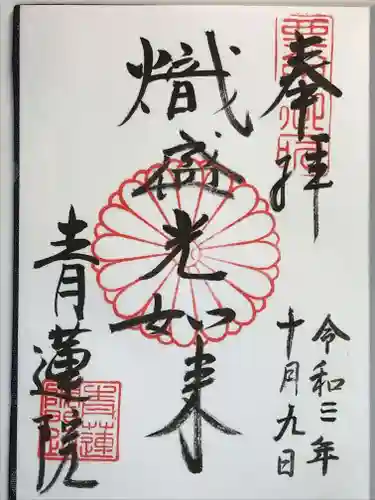 奉拝
令和三年
十月九日
熾盛光如来
青蓮院